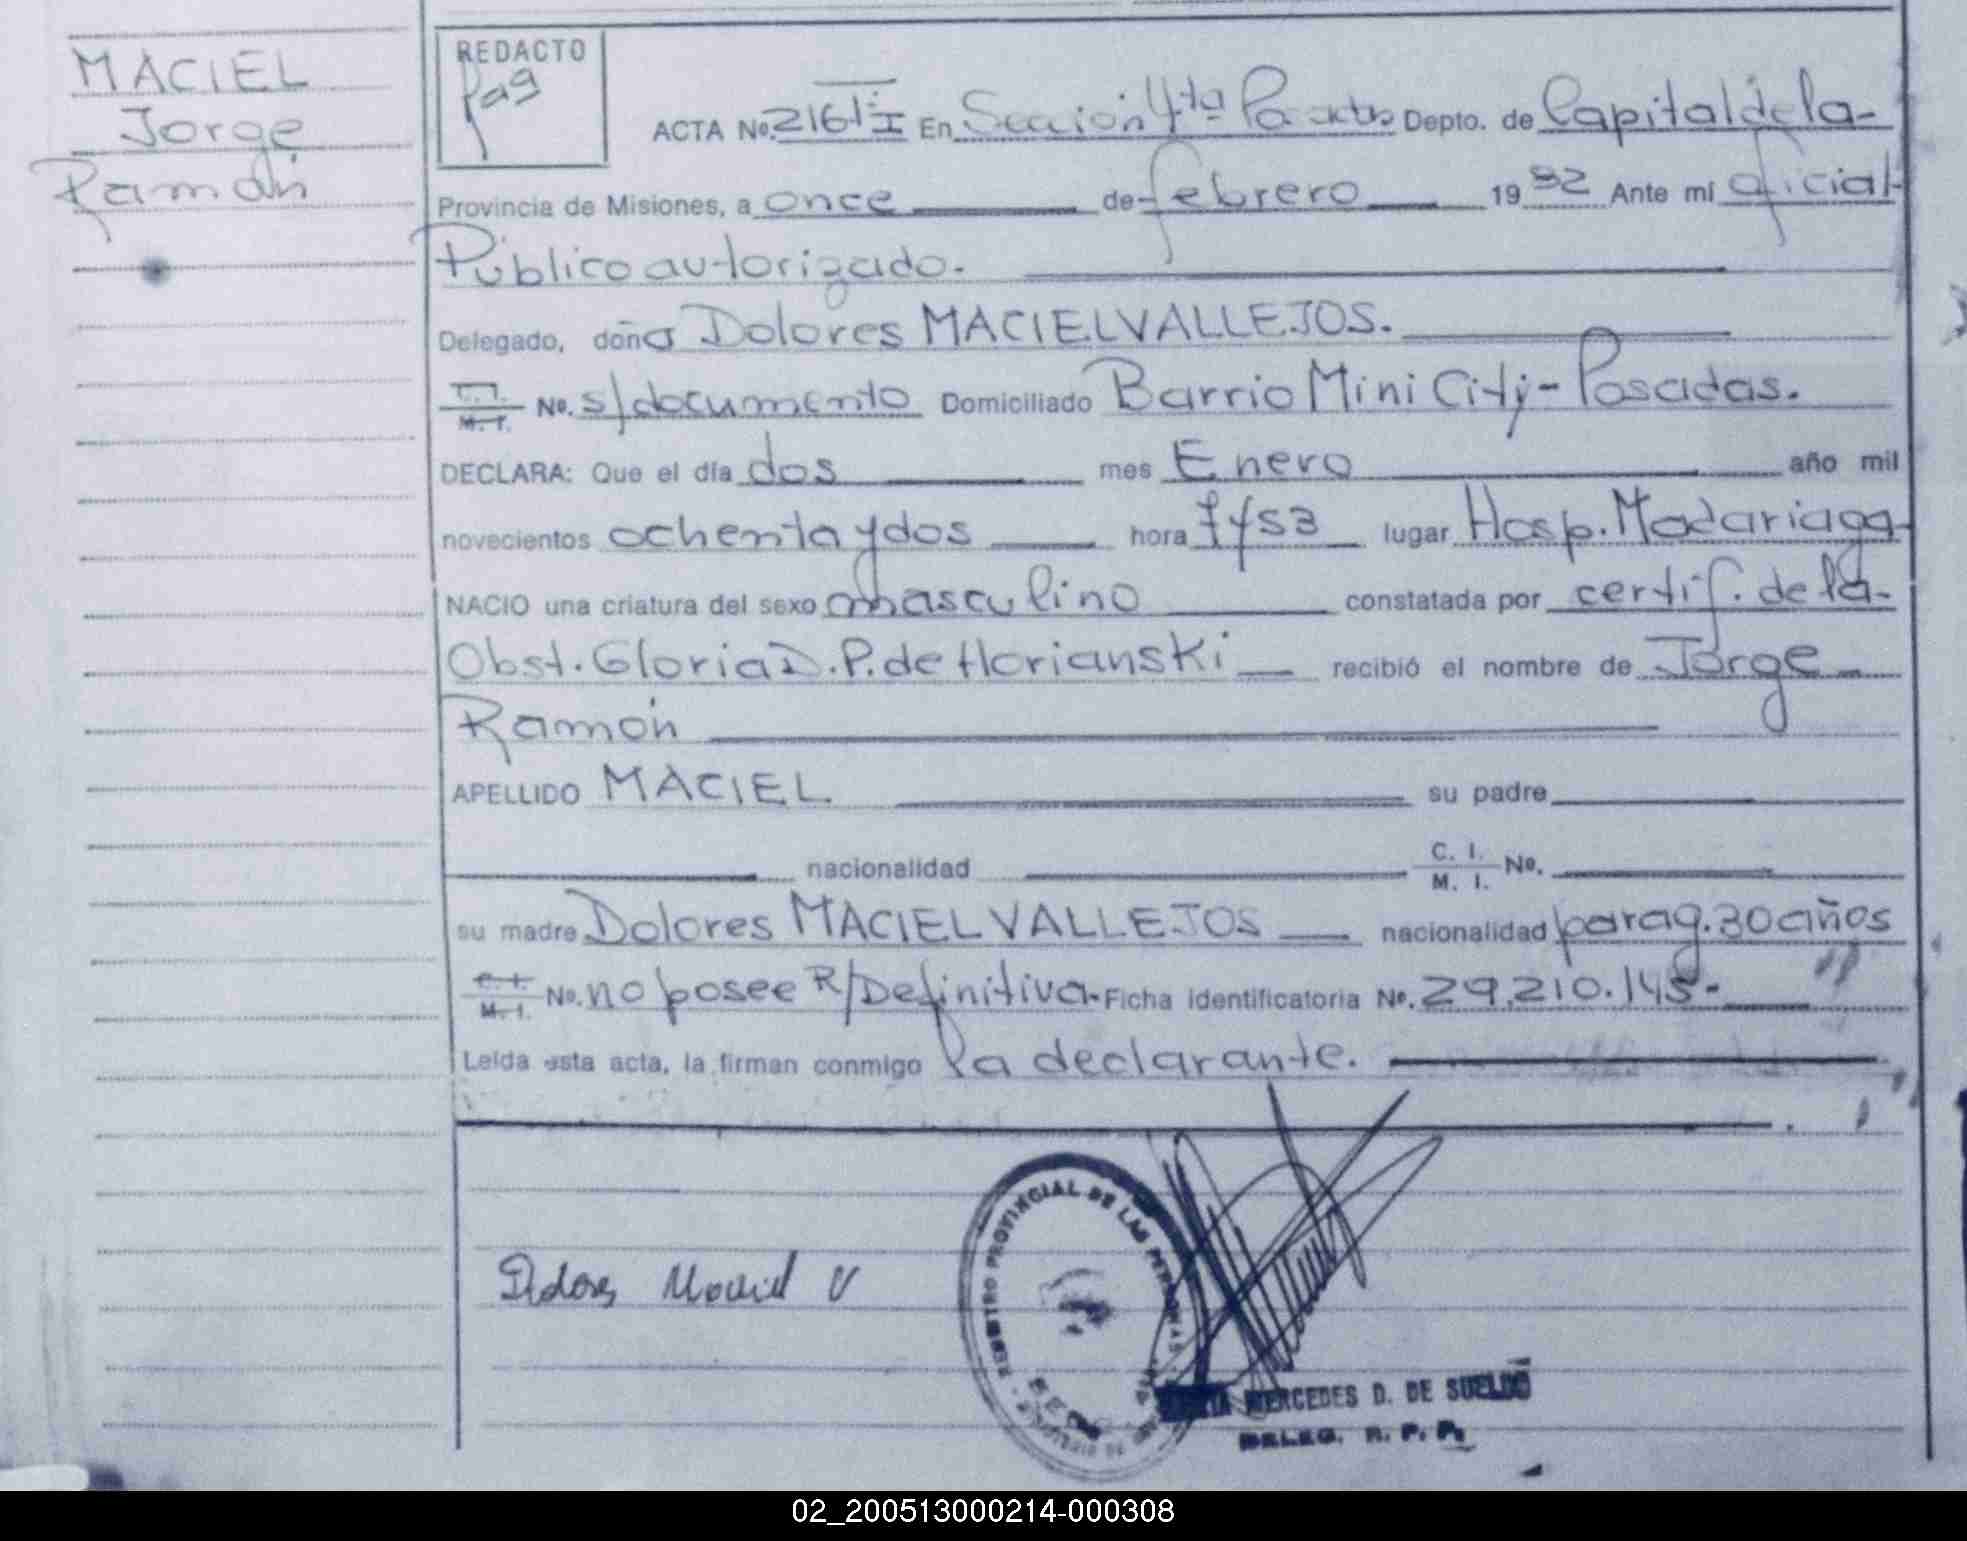 MACIEL
Jorge
Ramón
REDACTO
ACTA No. 216 I En Sección 4ta Posadas Depto. de Capital de la-
Provincia de Misiones, a once de febrero 1982 Ante mí oficial
Público autorizado.
Delegado, doña Dolores MACIEL VALLEJOS.
C. I. M. I. No. s/documento Domiciliado Barrio Mini City - Posadas.
DECLARA: Que el día dos mes Enero año mil
novecientos ochenta y dos hora lugar Hosp. Madariaga-
NACIO una criatura del sexo masculino constatada por certif. de la-
Obst. Gloria D. P. de Horianski recibió el nombre de Jorge
Ramón
APELLIDO MACIEL su padre
nacionalidad C. I. M. I. No.
su madre Dolores MACIEL VALLEJOS nacionalidad parag. 30 años
C. I. M. I. No. no posee R/Definitiva- Ficha identificatoria No. 29.210.145-
Leída esta acta, la firman conmigo la declarante.
Dolores Maciel V
REGISTRO PROVINCIAL DE LAS PERSONAS
MERCEDES D. DE SUELDO
DELEG. R. P. P.
02_200513000214-000308